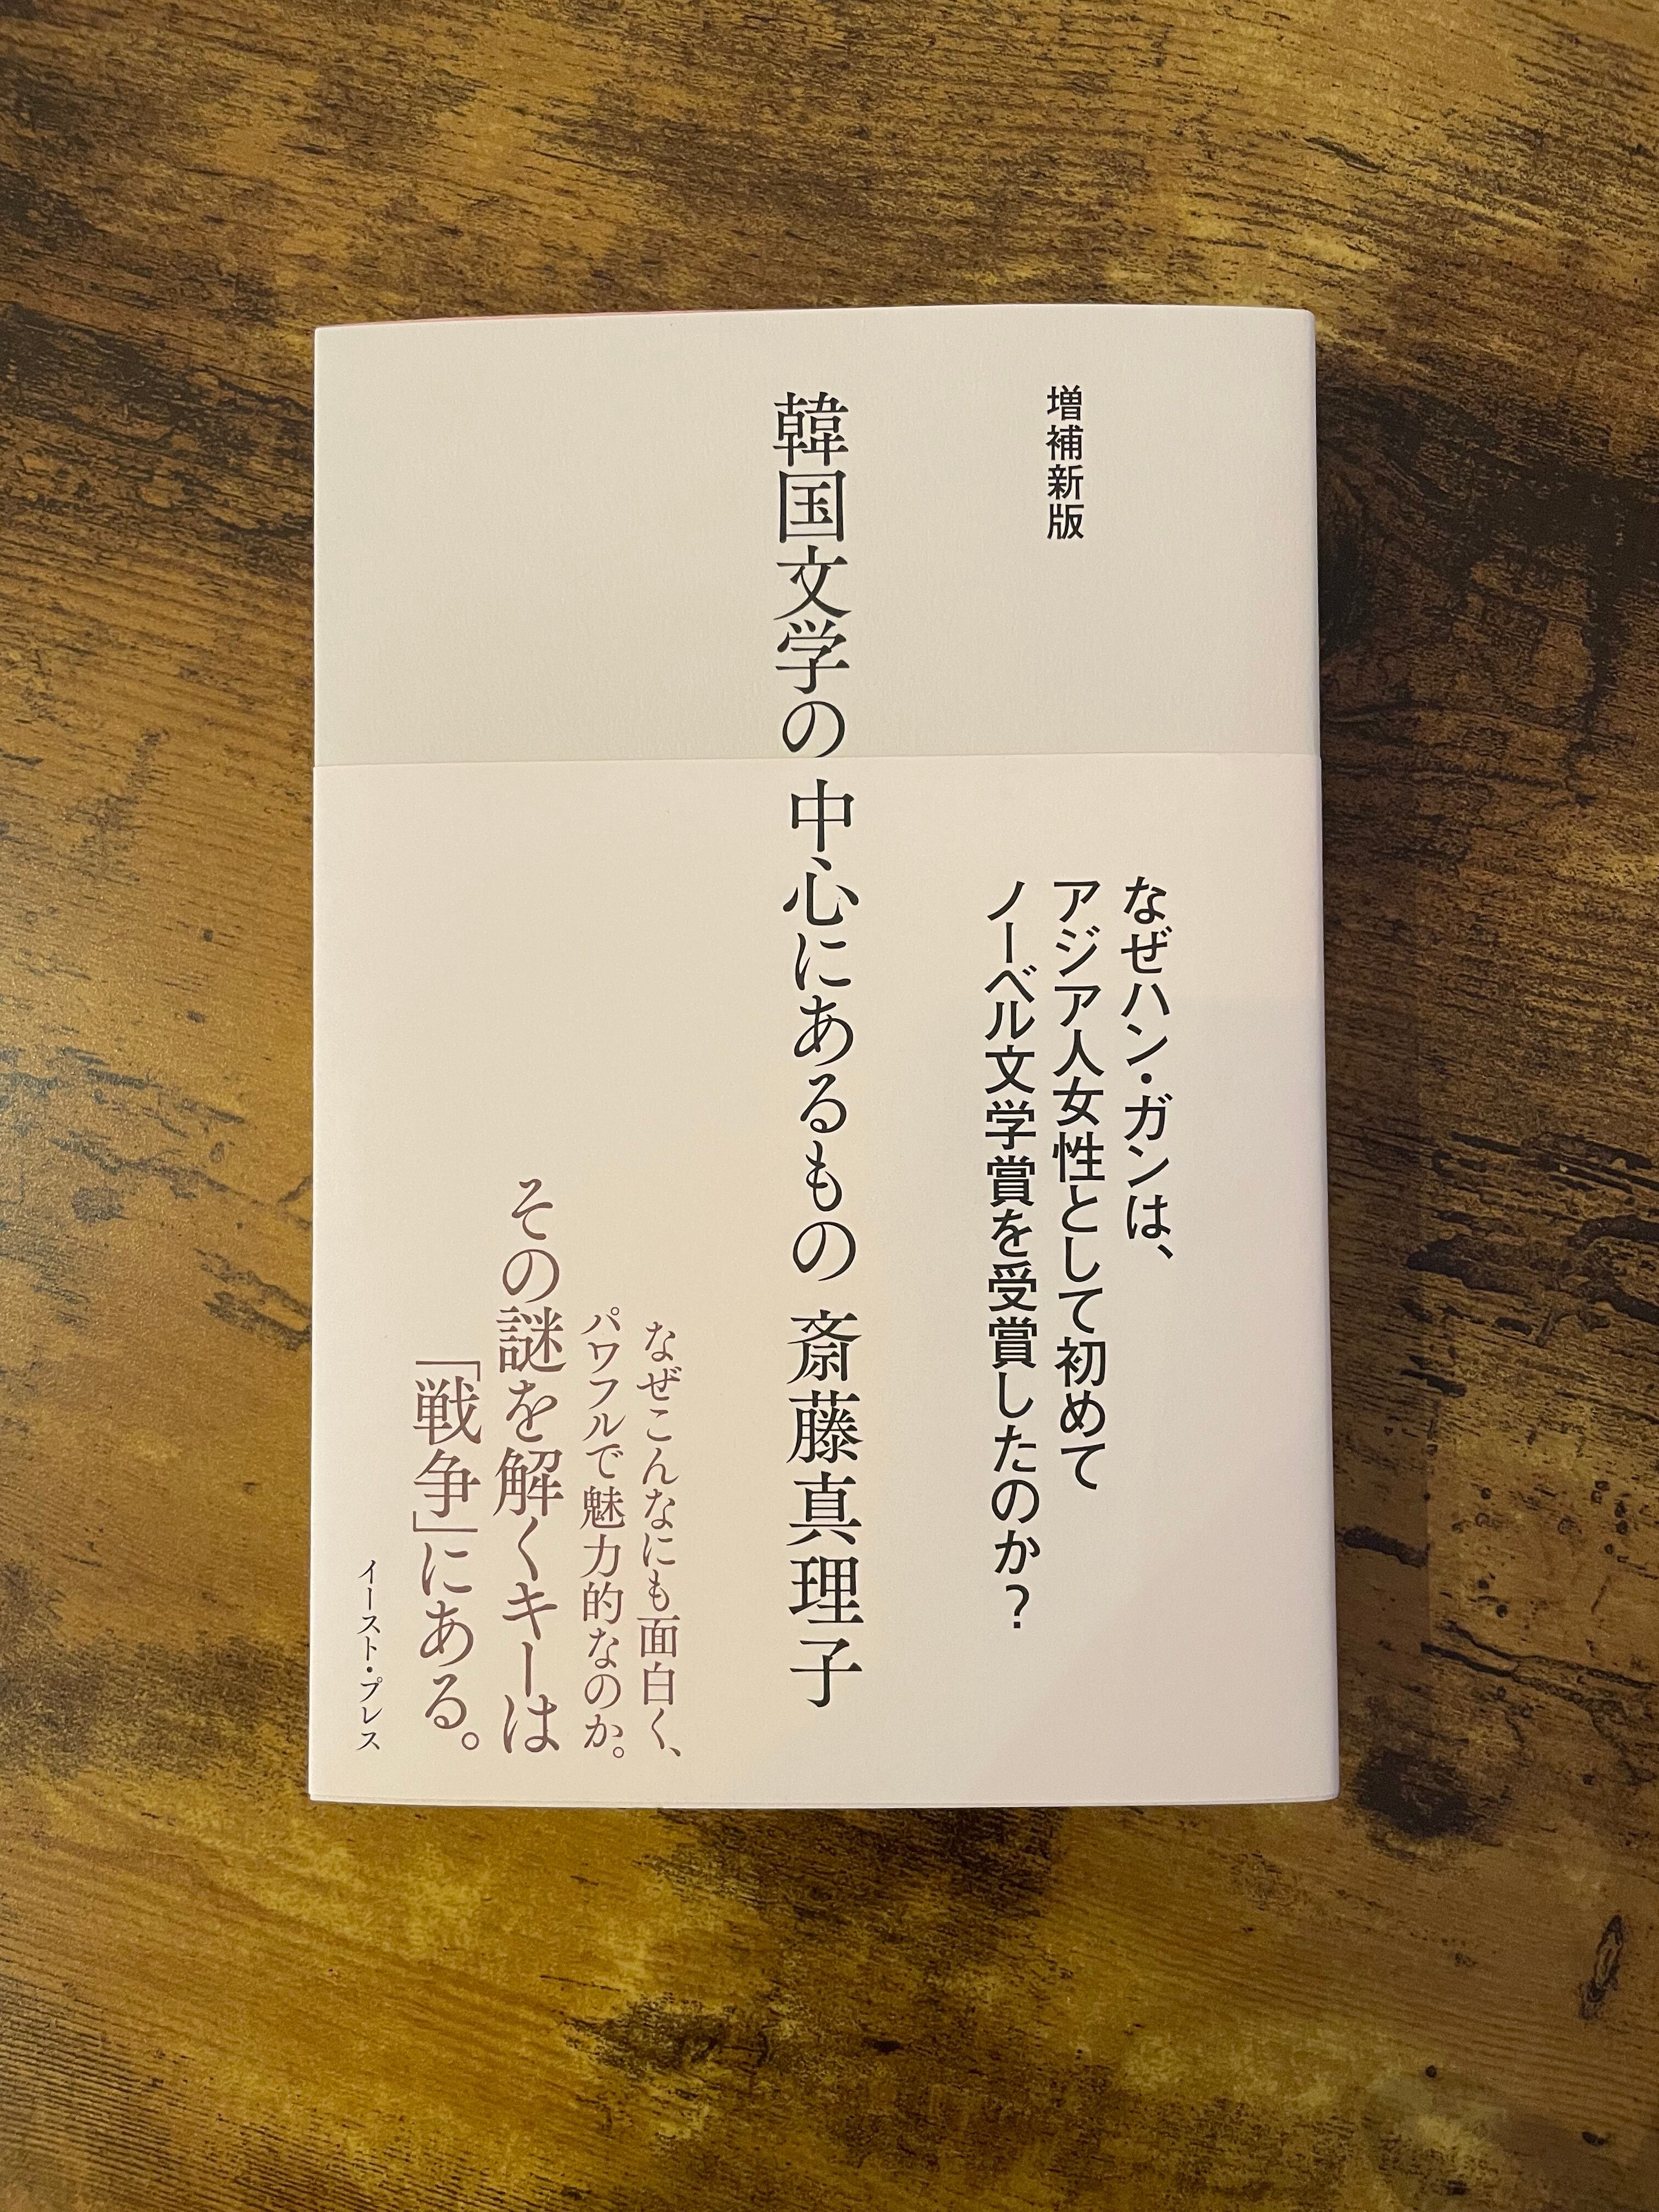 増補新版
なぜハン・ガンは、
アジア人女性として初めて
ノーベル文学賞を受賞したのか？
韓国文学の中心にあるもの 斎藤真理子
なぜこんなにも面白く、
パワフルで魅力的なのか。
その謎を解くキーは
「戦争」にある。
イースト・プレス